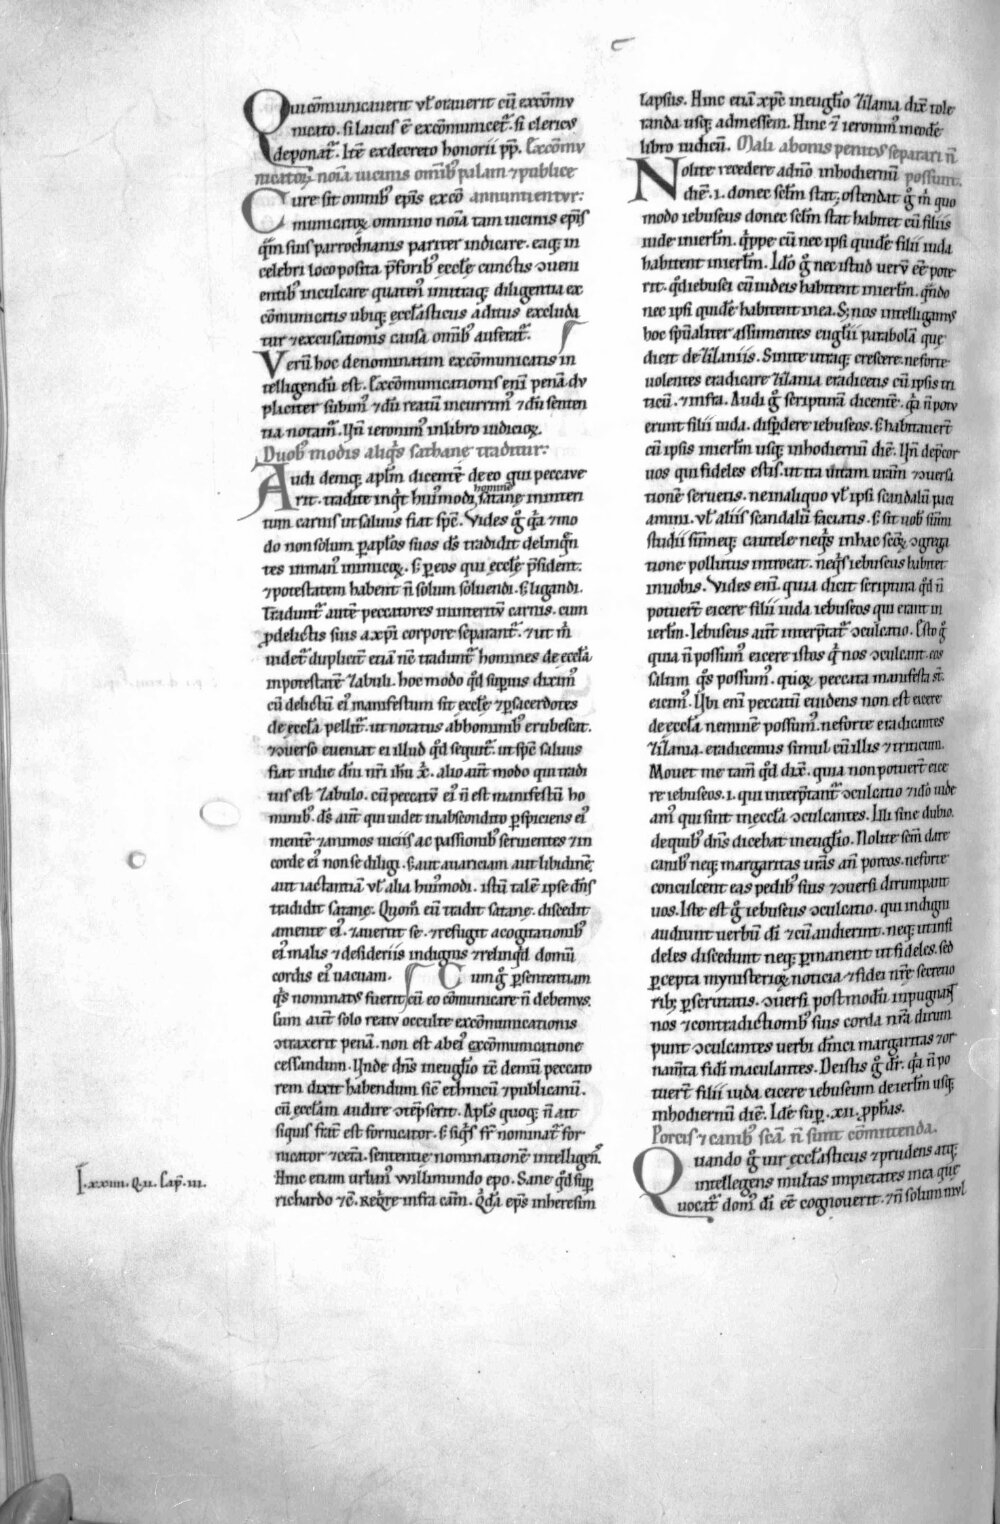 Qui cōmunicauerit ut̄ orauerit cū excōmu
nicato. si laicus ē excōmunicet᷑. si clericus
deponat᷑. Itē ex decreto honorii pp̄. Excōmu
nicatoꝝ noīa uicinis omībꝰ palam ⁊ publice
Cure sit omnibꝰ ep̄is excō annuntientur:
municatoꝝ omnino noīa tam uicinis ep̄is
q̄m suis parrochianis pariter indicare. eaqꝫ in
celebri loco posita p̄ foribꝰ ecclē cunctis ɔueni
entibꝰ inculcare quatenꝰ in utraqꝫ diligentia ex
cōmunicatis ubiqꝫ ecclasticus aditus excluda
tur ⁊ excusationis causa omībꝰ auferat᷑.
Verū hoc de nominatim excōmunicatis in
telligendū est. Excōmunicationis enī penā du
pliciter subimꝰ ⁊ dū reatū incurrimꝰ ⁊ dū senten
tia notam᷑. Uñ ieronimꝰ in libro iudicioꝝ.
Duobꝰ modis aliq̇s sathane traditur:
Audi deniqꝫ ap̄lm dicentē de eo qui peccaue
rit. tradite inq̇t huiꝰmodi hominē satanę in interi
tum carnis ut saluus fiat sp̄c. Vides g̊ q̄a ⁊ mo
do non solum ꝑ ap̄los suos dꝰ tradidit delinq̄n
tes in manꝰ inimicoꝝ. s; ꝑ eos qui ecclę p̄sident.
⁊ potestatem habent n̄ solum soluendi. s; ligandi.
Tradunt᷑ autē peccatores in interitū carnis. cum
ꝓ delictis suis a xp̄i corpore separant᷑. ⁊ ut m̄
uidet᷑ duplicit̄ etiā nc̄ tradunt᷑ homines de ecclā
in potestatē zabuli. hoc modo q̄d superius diximꝰ
cū delictū eiꝰ manifestum sit ecclę ⁊ ꝑ sacerdotes
de ecclā pellit᷑. ut notatus ab hominibꝰ erubescat.
⁊ ɔuerso eueniat ei illud q̄d sequit᷑. ut sp̄c saluus
fiat in die dn̄i nr̄i ih̄u x̄. alio aut̄ modo qui tradi
tus est zabulo. cū peccatū eiꝰ n̄ est manifestū ho
minibꝰ. dꝰ aut̄ qui uidet in abscondito ꝑspiciens eiꝰ
mentē ⁊ animos uiciis ac passionibꝰ seruientes ⁊ in
corde eiꝰ non se diligi. s; aut auariciam aut libidinē
aut iactantiā ut̄ alia huiꝰmodi. istū talē ipse dn̄s
tradidit satanę. Quom̊ eū tradit satanę. discedit
a mente eiꝰ. ⁊ auertit se. ⁊ refugit a cogitationibꝰ
eiꝰ malis ⁊ desideriis indignis ⁊ relinq̇d domū
cordis eiꝰ uacuam. Cum g̊ ꝑ sententiam
q̇s nominatus fuerit cū eo cōmunicare n̄ debemus.
Cum aut̄ solo reatu occulte excōmunicationis
ɔtraxerit penā. non est ab eiꝰ excōmunicatione
cessandum. Unde dn̄s in euglio tc̄ demū peccato
rem dixit habendum sic̄ ethnicū ⁊ publicanū.
cū ecclam audire ɔtēpserit. Ap̄ls quoqꝫ n̄ ait
siquis frat̄ est fornicator. s; siq̇s fr̄ nominat᷑ for
nicator ⁊ cetā. sententie nominationē intelligen̄.
Hinc etiam urbanꝰ willimundo epo. Sane q̄d sup̄
richardo ⁊c̄. Reqr̄e infra cām. Q̄dā ep̄s in heresim
I. xxiiii. Q. ii. Cap̄. iii.
lapsus. Hinc etiā xp̄c in euglio zizania dix̄ tole
randa usqꝫ ad messem. Hinc ⁊ ieronimꝰ in eodē
libro iudicū. Mali a bonis penitꝰ separari n̄
Nolite recedere a dn̄o in hodiernū possunt.
diē. i. donec sclm̄ stat; ostendat g̊ m̄ quo
modo iebuseus donec sclm̄ stat habitet cū filiis
iude in ierl̄m. q̄ppe cū nec ipsi quidē filii iuda
habitent in ierl̄m. Ido̊ g̊ nec istud uerū eē pote
rit. q̄d iebusei cū iudeis habitent in ierl̄m. q̄ndo
nec ipsi quidē habitent in ea. S; nos intelligimꝰ
hoc sp̄ualiter assumentes euglii parabolā que
dicit de zizaniis. Sinite utraqꝫ crescere. ne forte
uolentes eradicare zizania eradicetis cū ipsis tri
ticū. ⁊ infra. Audi g̊ scripturā dicentē. q̄a n̄ potu
erunt filii iuda. disperdere iebuseos. s; habitauert̄
cū ipsis in ierl̄m usqꝫ in hodiernū diē. Uñ dep̄cor
uos qui fideles estis. ut ita uitam uram̄ ⁊ ɔuersa
tionē seruetis. ne in aliquo ut̄ ipsi scandalū paci
amini. ut̄ aliis scandalū faciatis. s; sit uobꝰ sūmi
studii sūmeqꝫ cautele neq̇s in hac scām ɔgrega
tionē pollutus introeat. neq̇s iebuseus habitet
in uobis. Vides enī. quia dicit scriptura q̄d n̄
potuert̄ eicere filii iuda iebuseos qui erant in
ierl̄m. Iebuseus aut̄ interp̄tat᷑ ɔculcatio. Esto g̊
quia n̄ possumꝰ eicere istos q̇ nos ɔculcant. eos
saltim q̇s possumꝰ. quoꝝ peccata manifesta st̄.
eicimꝰ. Ubi enī peccatū euidens non est eicere
de ecclā neminē possumꝰ. ne forte eradicantes
zizania. eradicemus simul cū illis ⁊ triticum.
Mouet me tam̄ q̄d dix̄. quia non potuert̄ eice
re iebuseos. i. qui interp̄tant᷑ ɔculcatio ⁊ ido̊ uide
am̄ qui sint in ecclā ɔculcantes. Illi sine dubio.
de quibꝰ dn̄s dicebat in euglio. Nolite scm̄ dare
canibꝰ neqꝫ margaritas uras̄ an̄ porcos. ne forte
conculcent eas pedibꝰ suis ⁊ ɔuersi dirumpant
uos. Iste est g̊ iebuseus ɔculcatio. qui indigni
audiunt uerbū di ⁊ cū audierint. neqꝫ ut infi
deles discedunt neqꝫ ꝑmanent ut fideles. sed
ꝑcepta mynisterioꝝ noticia ⁊ fidei nr̄e secreto
ribꝫ ꝑscrutatis. ɔuersi postmodū inpugnant
nos ⁊ contradictionibꝰ suis corda nr̄a dirum
punt ɔculcantes uerbi diuini margaritas ⁊ or
nam̄ta fidī maculantes. De istis g̊ dr̄. q̄a n̄ po
tuert̄ filii iuda eicere iebuseum de ierl̄m usqꝫ
in hodiernū diē. Idē sup̄. xii. pp̄has.
Porcis ⁊ canibꝰ sc̄a n̄ sunt cōmittenda.
Quando g̊ uir ecclasticus ⁊ prudens atqꝫ
intellegens multas impietates in ea que
uocat᷑ domꝰ di eē cognouerit. ⁊ n̄ solum mul